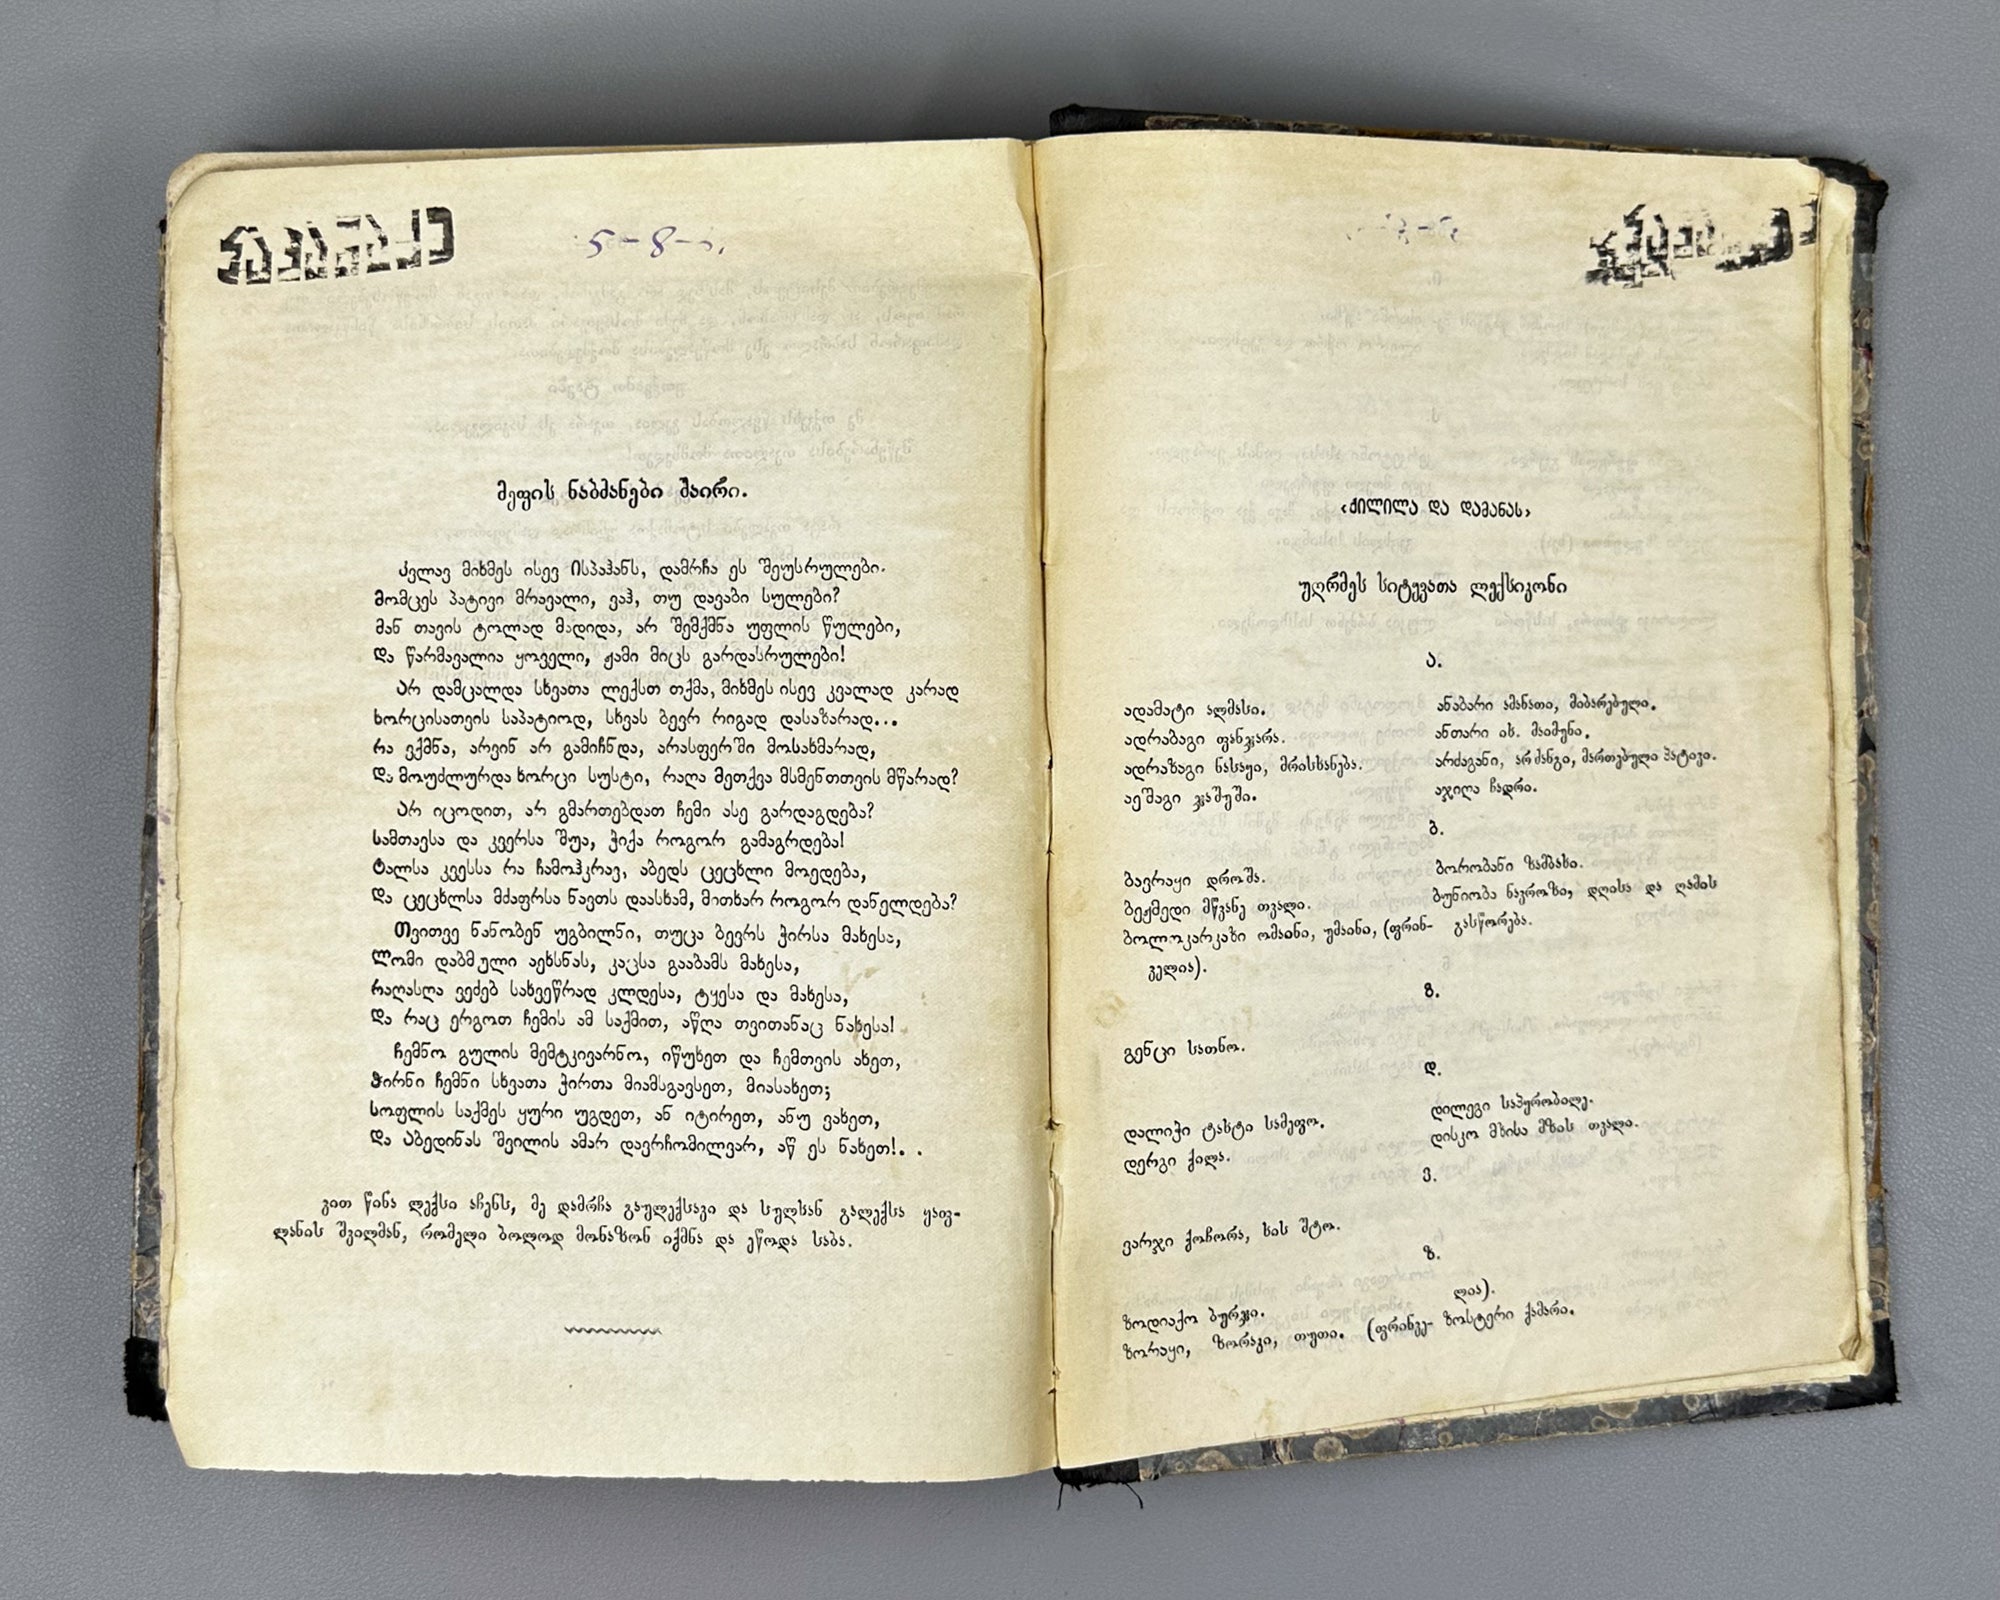 5-8-
მეფის ნაბძანები შაირი.
კვლავ მიხმეს ისევ ისპაჰანს, დამრჩა ეს შეუსრულები.
მომცეს პატივი მრავალი, ვაჰ, თუ დავაბი სულები?
მან თავის ტოლად მადიდა, არ შემქმნა უფლის წულები,
და წარმავალია ყოველი, ჟამი მიცს გარდასრულები!
არ დამცალდა სხვათა ლექსთ თქმა, მიხმეს ისევ კვალად კარად
ხორცისათვის საპატიოდ, სხვას ბევრ რიგად დასაზარად...
რა ვქმნა, არვინ არ გამიჩნდა, არასფერში მოსახმარად,
და მოუძლურდა ხორცი სუსტი, რაღა მეთქვა მსმენთთვის მწარად?
არ იცოდით, არ გმართებდათ ჩემი ასე გარდაგდება?
სამთაესა და კვერსა შუა, ჭიქა როგორ გამაგრდება!
ტალსა კვესსა რა ჩამოჰკრავ, აბედს ცეცხლი მოედება,
და ცეცხლსა მძაფრსა ნავთს დაასხამ, მითხარ როგორ დანელდება?
თვითვე ნანობენ უგბილნი, თუცა ბევრს ჭირსა მახესა,
ლომი დაბმული აეხსნას, კაცსა გააბამს მახესა,
რაღასღა ვეძებ სახვეწრად კლდესა, ტყესა და მახესა,
და რაც ერგოთ ჩემის ამ საქმით, აწღა თვითანაც ნახესა!
ჩემნო გულის მემტკივარნო, იწუხეთ და ჩემთვის ახეთ,
ჭირნი ჩემნი სხვათა ჭირთა მიამსგავსეთ, მიასახეთ;
სოფლის საქმეს ყური უგდეთ, ან იტირეთ, ანუ ვახეთ,
და აბედინას შვილის ამარ დავრჩომილვარ, აწ ეს ნახეთ!. .
ვით წინა ლექსი აჩენს, მე დამრჩა გაულექსავი და სულსან გალექსა ყაფ-
ლანის შვილმან, რომელი ბოლოდ მონაზონ იქმნა და ეწოდა საბა.
‹ქილილა და დამანას›
უღრმეს სიტყვათა ლექსიკონი
ა.
ადამატი ალმასი.
ადრაბაგი ფანჯარა.
ადრაზაგი ნასაყი, მრისხანება.
აეშაგი ჯაშუში.
ანაბარი ამანათი, მიბარებული.
ანთარი ის. მაიმუნი.
არძაგანი, არძანგი, მართებული პატივი.
აჯიღა ჩადრი.
ბ.
ბავრაყი დროშა.
ბეჟმედი მწვანე თვალი.
ბოლოკარკაზი ომაინი, უმაინი, (ფრინ-
ველია).
ბორობანი ზამბახი.
ბუნიობა ნავროზი, დღისა და ღამის
გასწორება.
გ.
გენცი სათნო.
დ.
დალიჭი ტახტი სამეფო.
დერგი ქილა.
დილეგი საპყრობილე.
დისკო მზისა მზის თვალი.
ვ.
ვარჯი ქოჩორა, ხის შტო.
ზ.
ზოდიაქო ბურჯი.
ზორაყი, ზორაკი, თუთი. (ფრინვე-
ლია).
ზოსტერი ქამარი.